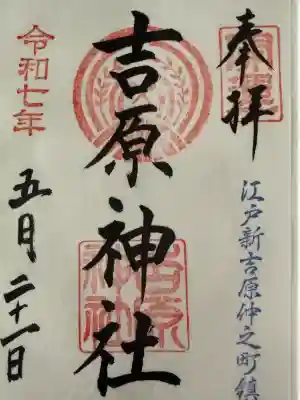 奉拝
江戸新吉原仲之町鎮
吉原神社
吉原神社
令和七年
五月二十一日